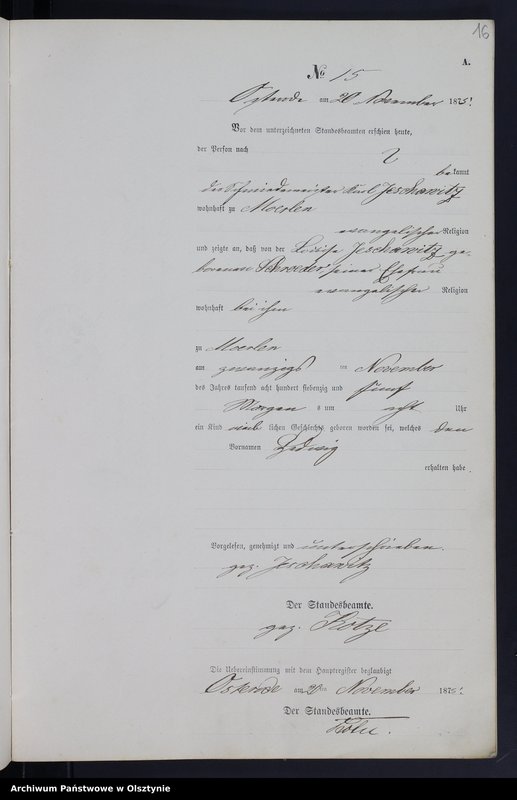 16
A.
No 15
am 20 November 1875
Vor dem unterzeichneten Standesbeamten erschien heute,
der Person nach
bekannt
der Schmiedemeister Karl Jeschawitz
wohnhaft zu Moerlen
evangelischer Religion
und zeigte an, daß von der Louise Jeschawitz ge-
borenen Schroeder seiner Ehefrau
evangelischer Religion
wohnhaft bei ihm
zu Moerlen
am zwanzigs ten November
des Jahres tausend acht hundert siebenzig und fünf
Morgens um acht Uhr
ein Kind weiblichen Geschlechts geboren worden sei, welches den
Vornamen Hedwig
erhalten habe
Vorgelesen, genehmigt und unterschrieben.
gez. Jeschawitz
Der Standesbeamte.
gez.
Die Uebereinstimmung mit dem Hauptregister beglaubigt
am 20ten November 1875
Der Standesbeamte.
Archiwum Państwowe w Olsztynie